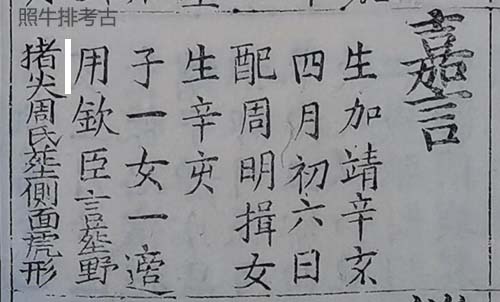 照牛排考古
嘉言
生加靖辛亥
四月初六日
配周明揖女
生辛亥
子一女一適
用欽臣言塟野
猪尖周氏塟側面虎形